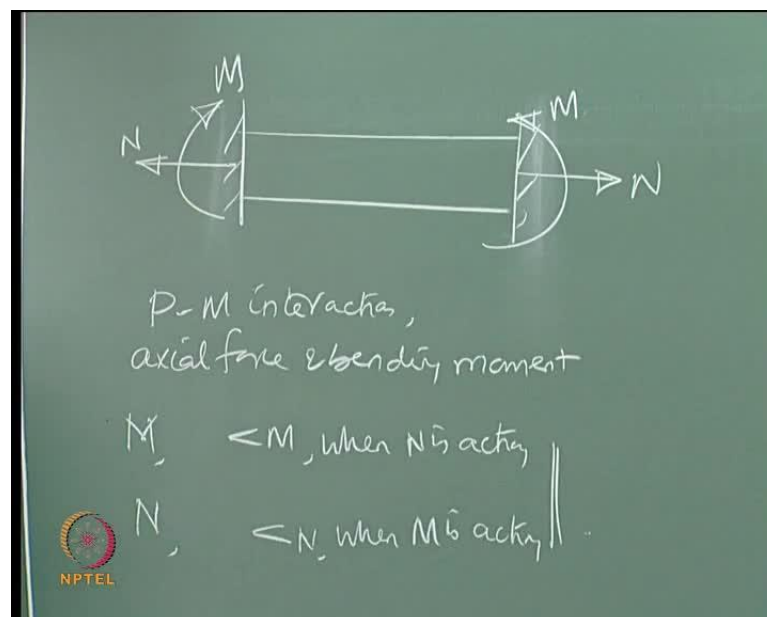 M
N
M
N
P-M interaction,
axial force & bending moment
M, < M, when N is acting
N, < N, when M is acting
NPTEL